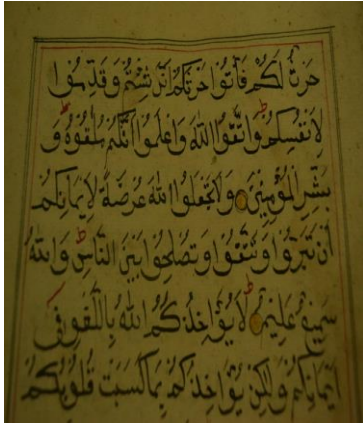 حَرْثٌ لَكُمْ فَأْتُوا حَرْثَكُمْ أَنَّى شِئْتُمْ وَقَدِّمُوا
لِأَنْفُسِكُمْ وَاتَّقُوا اللَّهَ وَاعْلَمُوا أَنَّكُمْ مُلَاقُوهُ وَ
بَشِّرِ الْمُؤْمِنِينَ وَلَا تَجْعَلُوا اللَّهَ عُرْضَةً لِأَيْمَانِكُمْ
أَنْ تَبَرُّوا وَتَتَّقُوا وَتُصْلِحُوا بَيْنَ النَّاسِ وَاللَّهُ
سَمِيعٌ عَلِيمٌ لَا يُؤَاخِذُكُمُ اللَّهُ بِاللَّغْوِ فِي
أَيْمَانِكُمْ وَلَكِنْ يُؤَاخِذُكُمْ بِمَا كَسَبَتْ قُلُوبُكُمْ